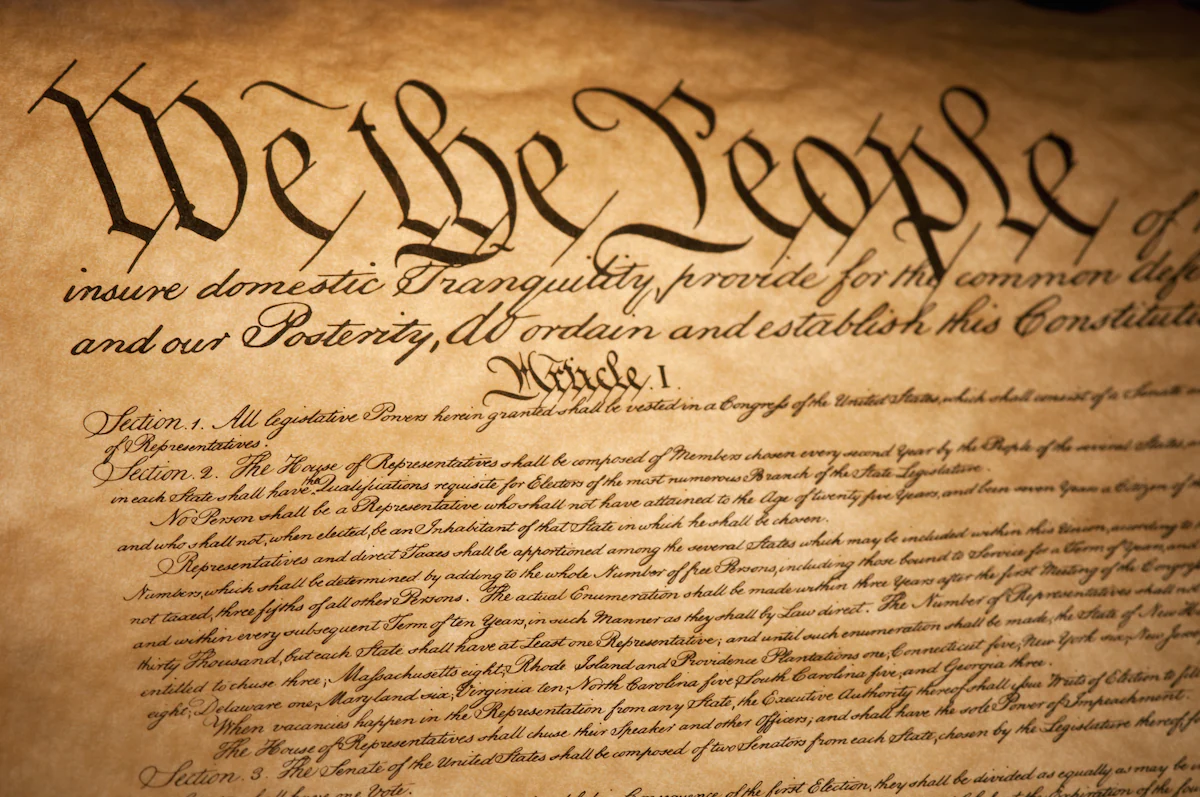 We the People of
insure domestic Tranquility, provide for the common defe
and our Posterity, do ordain and establish this Constitut
Article. I.
Section. 1. All legislative Powers herein granted shall be vested in a Congress of the United States, which shall consist of a Senate
of Representatives.
Section. 2. The House of Representatives shall be composed of Members chosen every second Year by the People of the several States,
in each State shall have the Qualifications requisite for Electors of the most numerous Branch of the State Legislature.
No Person shall be a Representative who shall not have attained to the Age of twenty five Years, and been seven Years a Citizen of
and who shall not, when elected, be an Inhabitant of that State in which he shall be chosen.
Representatives and direct Taxes shall be apportioned among the several States which may be included within this Union, according
Numbers, which shall be determined by adding to the whole Number of free Persons, including those bound to Service for a Term of Years, and
not taxed, three fifths of all other Persons. The actual Enumeration shall be made within three Years after the first Meeting of the Congre
and within every subsequent Term of ten Years, in such Manner as they shall by Law direct. The Number of Representatives shall not
thirty Thousand, but each State shall have at Least one Representative; and until such enumeration shall be made, the State of New
entitled to chuse three, Massachusetts eight, Rhode Island and Providence Plantations one, Connecticut five, New York six, New Jersey
eight, Delaware one, Maryland six, Virginia ten, North Carolina five, South Carolina five, and Georgia three.
When vacancies happen in the Representation from any State, the Executive Authority thereof shall issue Writs of Election to fill
The House of Representatives shall chuse their Speaker and other Officers; and shall have the sole Power of Impeachment.
Section. 3. The Senate of the United States shall be composed of two Senators from each State, chosen by the Legislature thereof,
have one Vote.
Consequence of the first Election, they shall be divided as equally as may be
Expiration of the